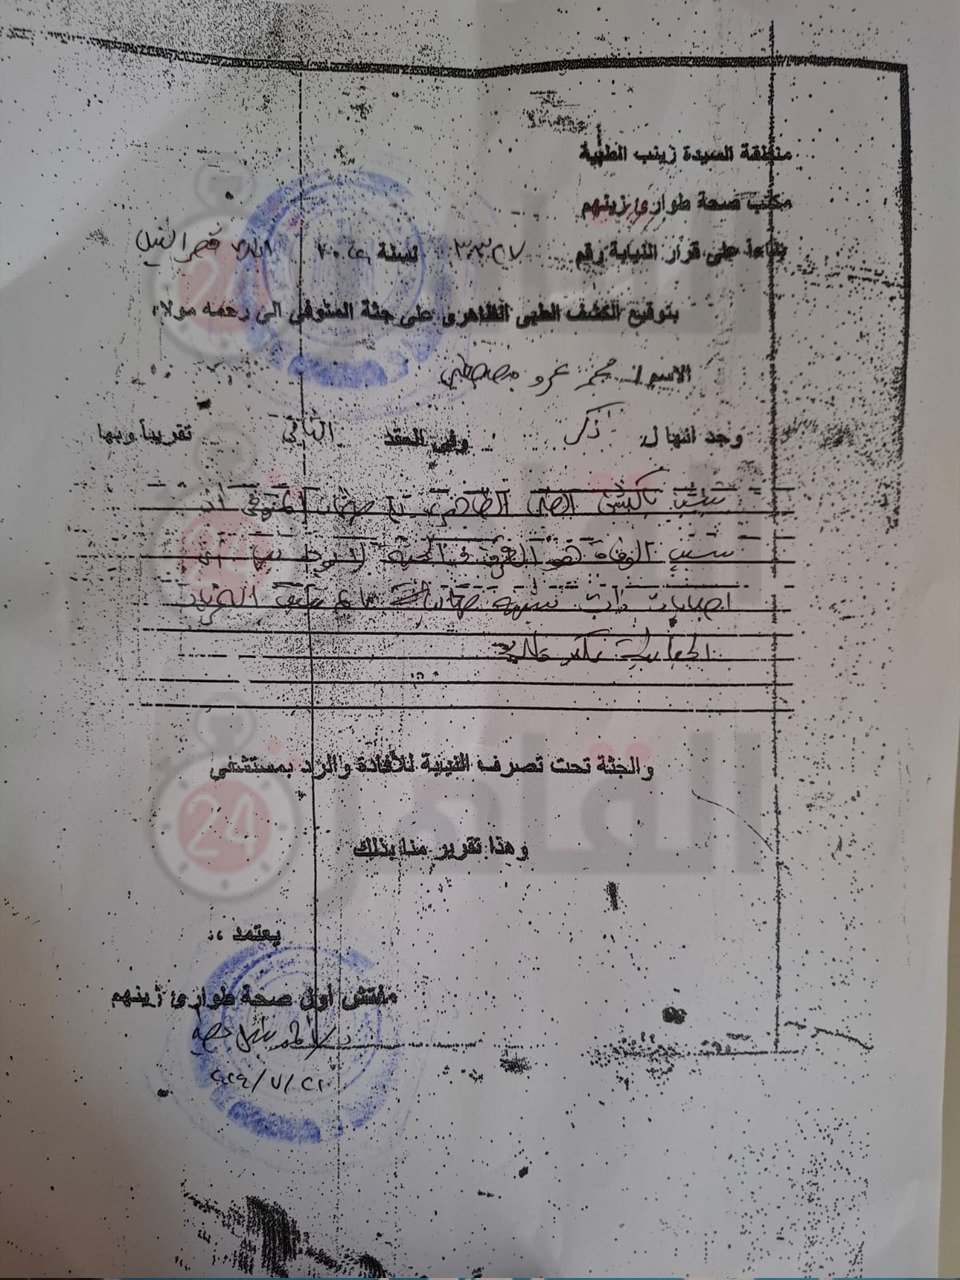 منطقة السيدة زينب الطبية
مكتب صحة طوارئ زينهم
بناءا على قرار النيابة رقم ٣٣٢٧ لسنة ٢٠٢٤ قصر النيل
بتوقيع الكشف الطبى الظاهرى على جثة المتوفى الى رحمه مولاه
الاسم / محمد عمرو مصطفى
وجد انها ل: ذكر وفى العقد الثانى تقريبا وبها
تبين بالكشف الطبى الظاهرى على جثمان المتوفى أن
سبب الوفاة هو الغرق ولا يوجد بها أى
اصابات ذات شبهة جنائية
والجثة تحت تصرف النيابة للأفادة والرد بمستشفى
وهذا تقرير منا بذلك
يعتمد ،،
مفتش أول صحة طوارئ زينهم
القاهرة 24